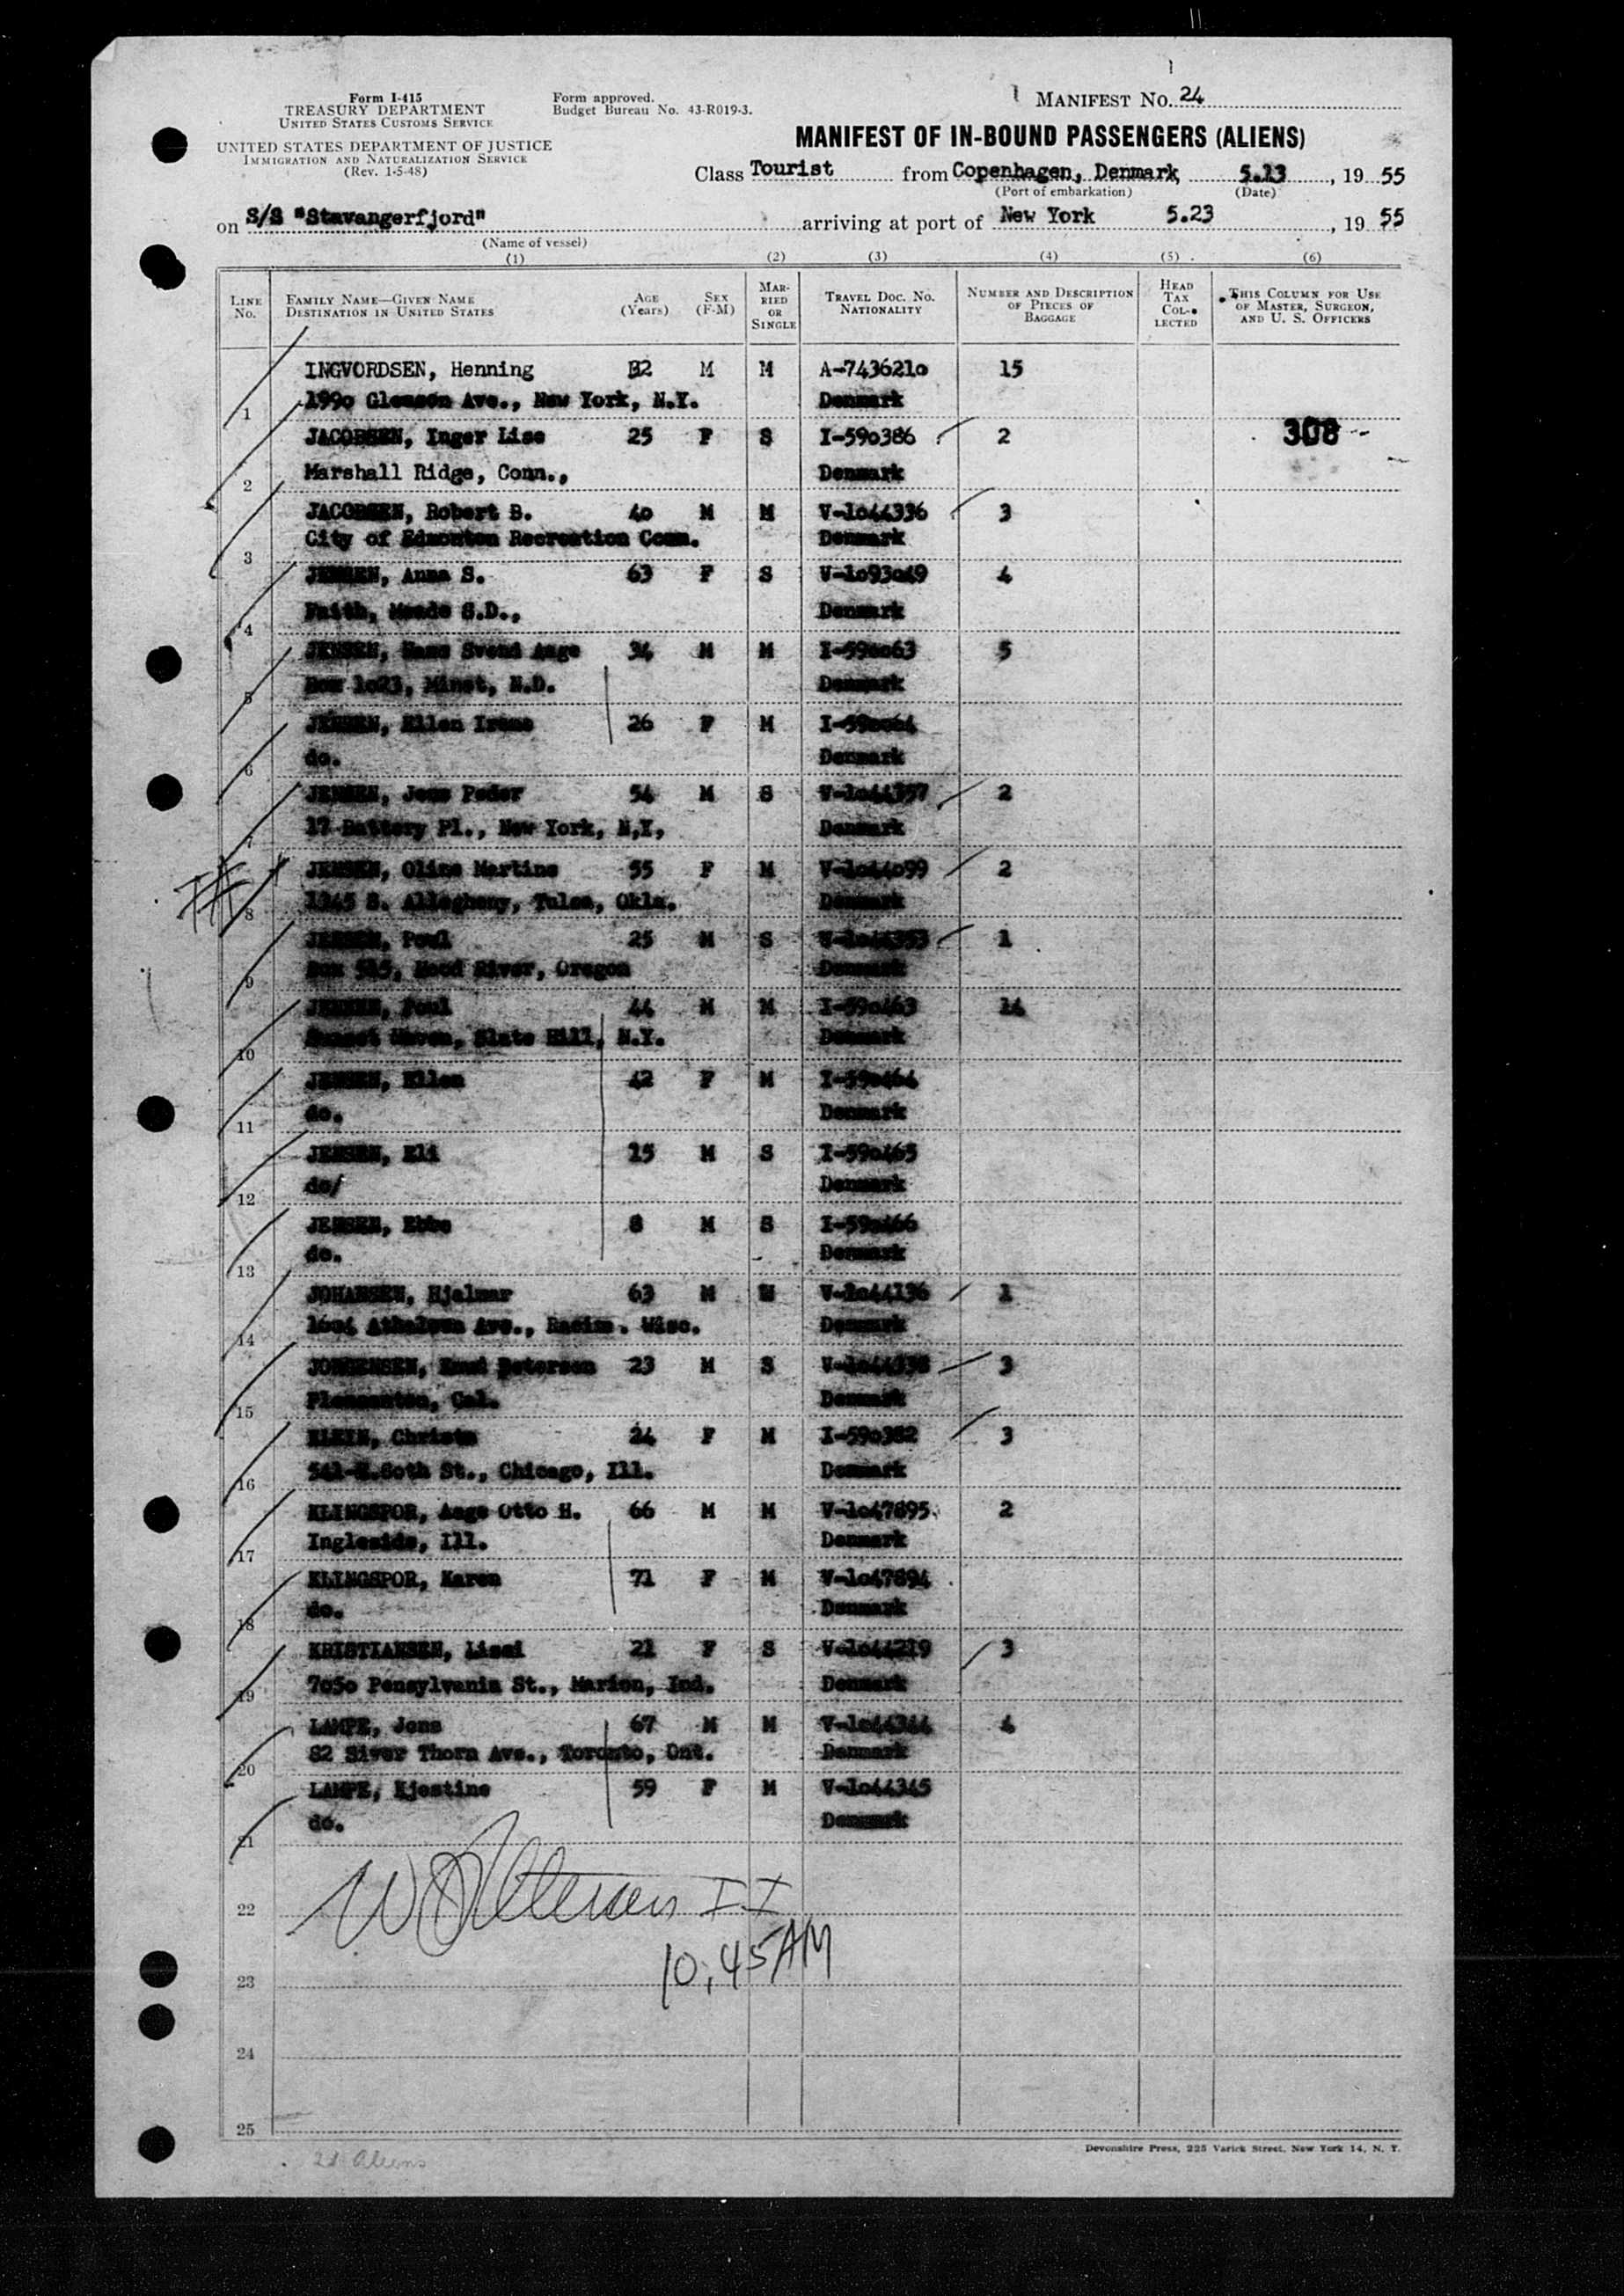 Form I-415
TREASURY DEPARTMENT
UNITED STATES CUSTOMS SERVICE
UNITED STATES DEPARTMENT OF JUSTICE
IMMIGRATION AND NATURALIZATION SERVICE
(Rev. 1-5-48)
Form approved.
Budget Bureau No. 43-R019-3.
MANIFEST NO. 24
MANIFEST OF IN-BOUND PASSENGERS (ALIENS)
Class Tourist from Copenhagen, Denmark, 5.13, 19 55
(Port of embarkation) (Date)
on S/S "Stavangerfjord" arriving at port of New York 5.23, 19 55
(Name of vessel)
(1) (2) (3) (4) (5) (6)
LINE No. FAMILY NAME—GIVEN NAME DESTINATION IN UNITED STATES AGE (Years) SEX (F-M) MARRIED OR SINGLE TRAVEL DOC. NO. NATIONALITY NUMBER AND DESCRIPTION OF PIECES OF BAGGAGE HEAD TAX COLLECTED THIS COLUMN FOR USE OF MASTER, SURGEON, AND U. S. OFFICERS
INGVORDSEN, Henning 32 M M A-7436210 15
1 1990 Gleason Ave., New York, N.Y. Denmark
JACOBSEN, Inger Lise 25 F S I-590386 2 308
2 Marshall Ridge, Conn., Denmark
JACOBSEN, Robert B. 40 M M V-1044336 3
3 City of Edmonton Recreation Comm. Denmark
JENSEN, Anna S. 63 F S V-1093049 4
4 Faith, Meade S.D., Denmark
JENSEN, Hans Svend Aage 34 M M I-590063 5
5 Box 1023, Minot, N.D. Denmark
JENSEN, Ellen Irene 26 F M I-590064
6 do. Denmark
JENSEN, Jens Peder 54 M S V-1044357 2
7 17 Battery Pl., New York, N,Y, Denmark
JENSEN, Oline Martine 55 F M V-1044099 2
8 1345 S. Allegheny, Tulsa, Okla. Denmark
JENSEN, Poul 25 M S V-1044353 1
9 Box 515, Hood River, Oregon Denmark
JENSEN, Poul 44 M M I-590463 14
10 Sunset Haven, Slate Hill, N.Y. Denmark
JENSEN, Ellen 42 F M I-590464
11 do. Denmark
JENSEN, Eli 15 M S I-590465
12 do/ Denmark
JENSEN, Ebbe 8 M S I-590466
13 do. Denmark
JOHANSEN, Hjalmar 63 M 1
14 Ave., Racine. Wisc. Denmark
JORGENSEN, Knud Petersen 23 M S 3
15 Pleasanton, Cal. Denmark
KLEIN, Christa 24 F M I-590382 3
16 St., Chicago, Ill. Denmark
KLINGSPOR, Aage Otto H. 66 M M V-1047895 2
17 Ingleside, Ill. Denmark
KLINGSPOR, Karen 71 F M V-1047894
18 do. Denmark
KRISTIANSEN, Lissi 21 F S V-1044219 3
19 7050 Pensylvania St., Marion, Ind. Denmark
LAMPE, Jens 67 M M V-1044344 4
20 82 Siver Thorn Ave., Toronto, Ont. Denmark
LAMPE, Kjestine 59 F M V-1044345
21 do. Denmark
22 II
10,45 AM
23
24
25
21 Aliens
Devonshire Press, 225 Varick Street, New York 14, N. Y.